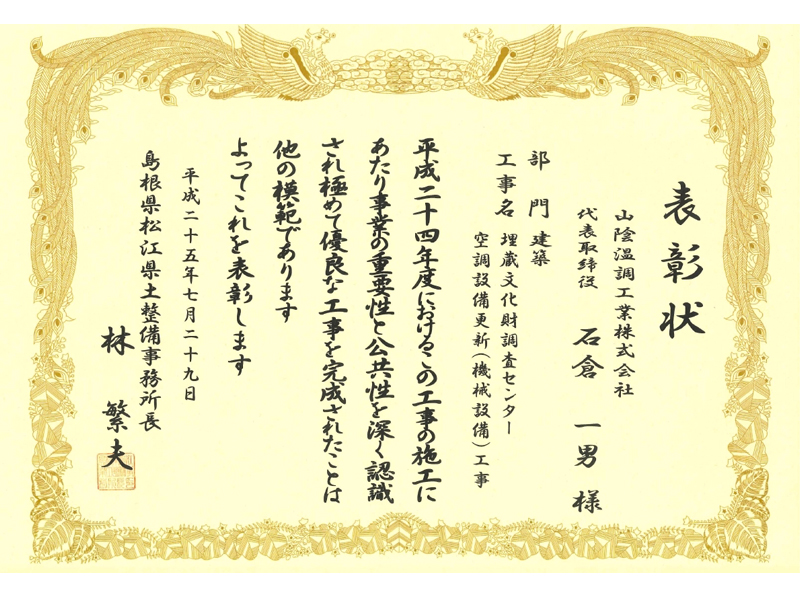 表彰状
山陰温調工業株式会社
代表取締役 石倉 一男 様
部門 建築
工事名 埋蔵文化財調査センター
空調設備更新(機械設備)工事
平成二十四年度におけるこの工事の施工に
あたり事業の重要性と公共性を深く認識
され極めて優良な工事を完成されたことは
他の模範であります
よってこれを表彰します
平成二十五年七月二十九日
島根県松江県土整備事務所長
林 繁夫